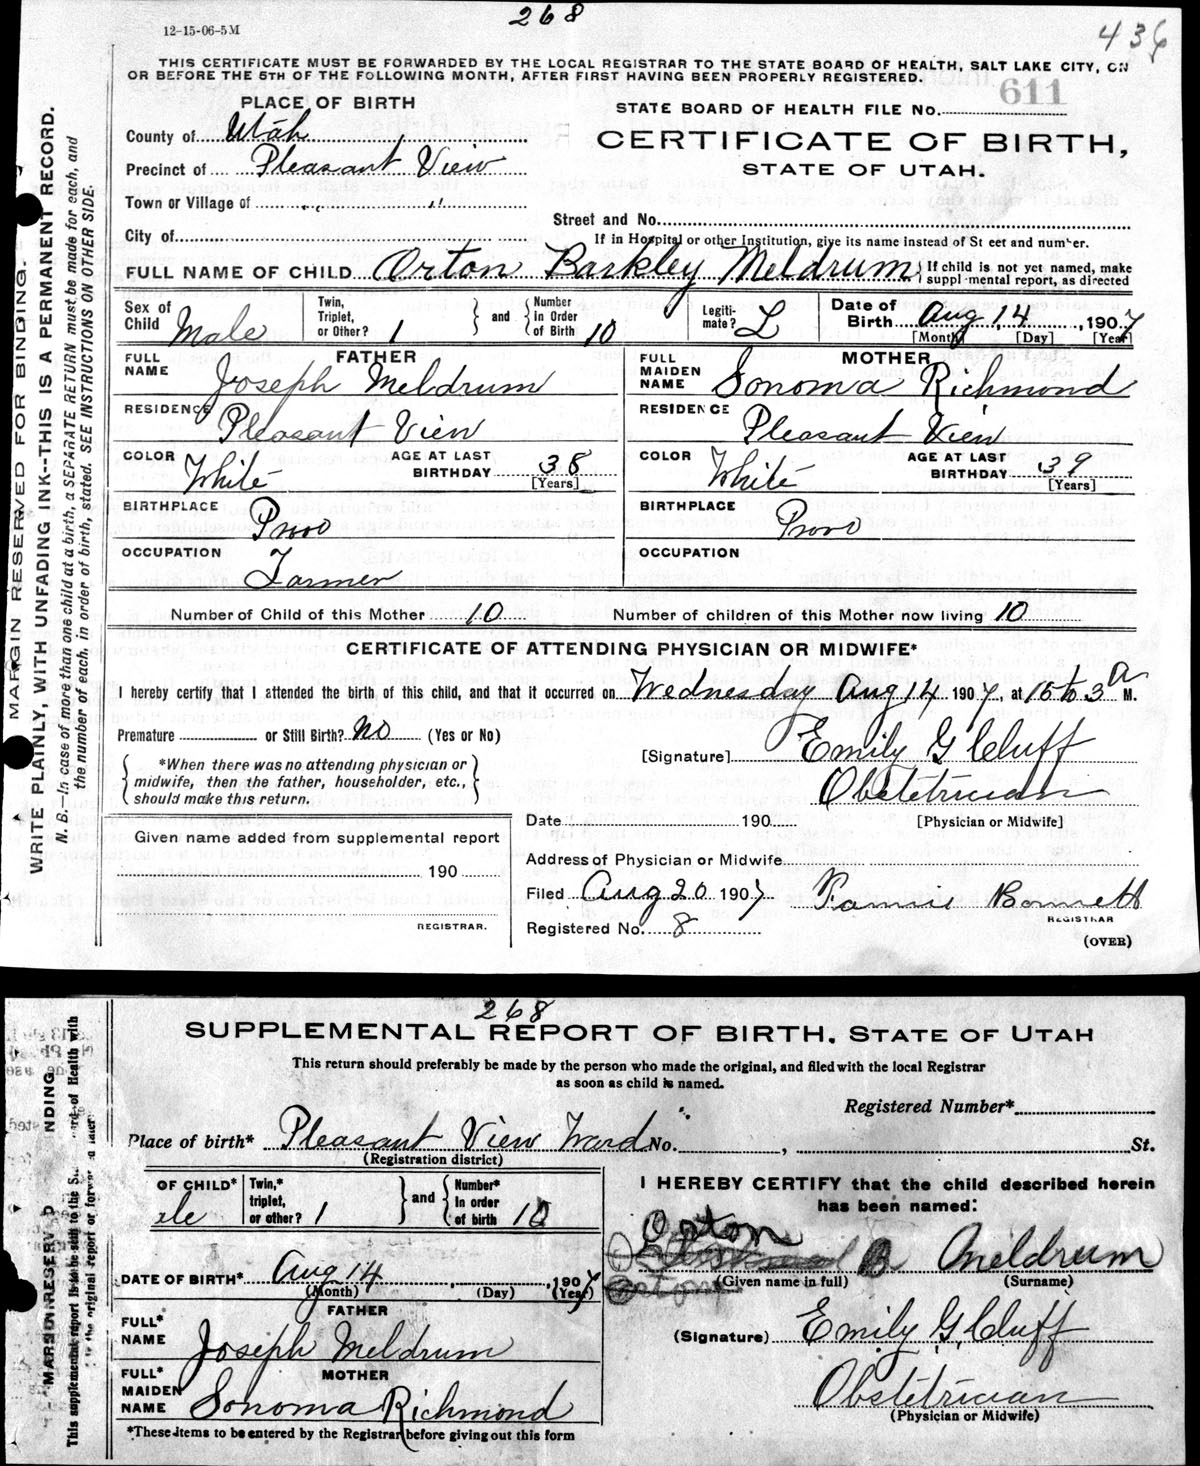 12-15-06-5M
268
436
THIS CERTIFICATE MUST BE FORWARDED BY THE LOCAL REGISTRAR TO THE STATE BOARD OF HEALTH, SALT LAKE CITY, ON
OR BEFORE THE 5TH OF THE FOLLOWING MONTH, AFTER FIRST HAVING BEEN PROPERLY REGISTERED.
MARGIN RESERVED FOR BINDING.
WRITE PLAINLY, WITH UNFADING INK--THIS IS A PERMANENT RECORD.
N. B.—In case of more than one child at a birth, a SEPARATE RETURN must be made for each, and
the number of each, in order of birth, stated. SEE INSTRUCTIONS ON OTHER SIDE.
PLACE OF BIRTH
County of Utah
Precinct of Pleasant View
Town or Village of " "
City of
STATE BOARD OF HEALTH FILE No. 611
CERTIFICATE OF BIRTH,
STATE OF UTAH.
Street and No.
If in Hospital or other Institution, give its name instead of St eet and number.
FULL NAME OF CHILD Orton Barkley Meldrum { If child is not yet named, make
suppl mental report, as directed
Sex of Child Male
Twin, Triplet, or Other? 1 } and { Number in Order of Birth 10
Legiti-mate? L
Date of Birth Aug 14, 1907
[Month] [Day] [Year]
FATHER
FULL NAME Joseph Meldrum
RESIDENCE Pleasant View
COLOR White AGE AT LAST BIRTHDAY 38 [Years]
BIRTHPLACE Provo
OCCUPATION Farmer
MOTHER
FULL MAIDEN NAME Sonoma Richmond
RESIDENCE Pleasant View
COLOR White AGE AT LAST BIRTHDAY 39 [Years]
BIRTHPLACE Provo
OCCUPATION
Number of Child of this Mother 10 Number of children of this Mother now living 10
CERTIFICATE OF ATTENDING PHYSICIAN OR MIDWIFE*
I hereby certify that I attended the birth of this child, and that it occurred on Wednesday Aug 14 1907, at 15 to 3 A M.
Premature or Still Birth? No (Yes or No)
{ *When there was no attending physician or
midwife, then the father, householder, etc.,
should make this return. }
[Signature] Emily G Cluff
Obstetrician
[Physician or Midwife]
Given name added from supplemental report
190
REGISTRAR.
Date 190
Address of Physician or Midwife
Filed Aug 20 1907 Fannie Bonnett
REGISTRAR
Registered No. 8
(OVER)
268
SUPPLEMENTAL REPORT OF BIRTH, STATE OF UTAH
This return should preferably be made by the person who made the original, and filed with the local Registrar
as soon as child is named.
Registered Number*
Place of birth* Pleasant View Ward No. , St.
(Registration district)
OF CHILD* ale
Twin,* triplet, or other? 1 } and { Number* In order of birth 10
DATE OF BIRTH* Aug 14, 1907
(Month) (Day) (Year)
FATHER
FULL* NAME Joseph Meldrum
MOTHER
FULL* MAIDEN NAME Sonoma Richmond
*These items to be entered by the Registrar before giving out this form
I HEREBY CERTIFY that the child described herein
has been named:
Orton B Meldrum
(Given name in full) (Surname)
(Signature) Emily G Cluff
Obstetrician
(Physician or Midwife)